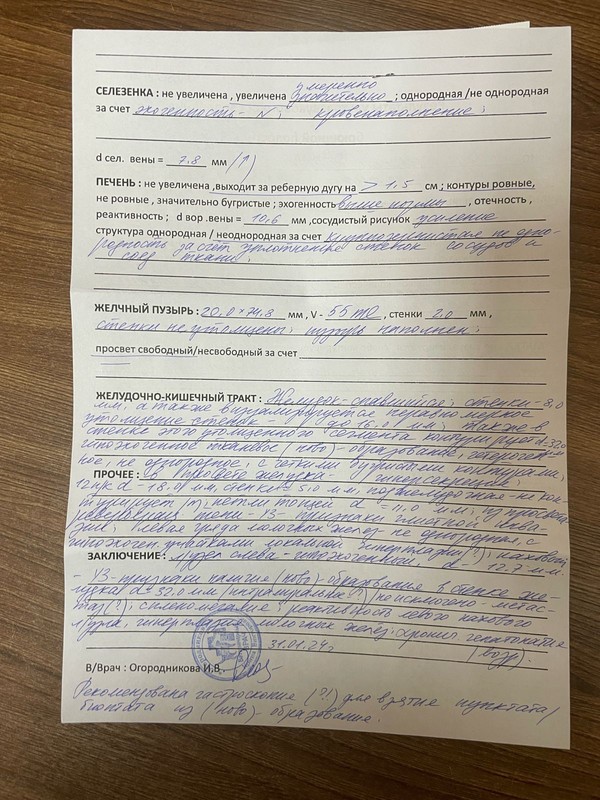 СЕЛЕЗЕНКА : не увеличена , увеличена умеренно значительно ; однородная /не однородная
за счет эхогенность - N ; кровенаполнение ;
d сел. вены = 7.8 мм /↑)
ПЕЧЕНЬ : не увеличена ,выходит за реберную дугу на > 1.5 см ; контуры ровные,
не ровные , значительно бугристые ; эхогенность выше нормы , отечность ,
реактивность ; d вор .вены = 10,6 мм ,сосудистый рисунок усиление
структура однородная / неоднородная за счет крупнозернистая не одно-
родность за счет уплотнения стенок сосудов и
соед. ткани.
ЖЕЛЧНЫЙ ПУЗЫРЬ : 20.0 × 74.8 мм , V - 55 ml , стенки 2.0 мм ,
стенки не утолщены; пузырь наполнен.
просвет свободный/несвободный за счет
ЖЕЛУДОЧНО-КИШЕЧНЫЙ ТРАКТ : Желудок - спавшийся; стенки - 8,0
мм, а также визуализируется неравномерное
утолщение стенок - до 16.0 мм; также в
стенке этого утолщенного сегмента контурируется d-32,0
гипоэхогенное тканевое (ново)- образование, гетероген-
ное, не однородное, с четкими бугристыми контурами;
ПРОЧЕЕ : В просвете желудка - гиперсекреция;
12 п/к d = 18.0 мм, стенки = 5,0 мм, поджелудочная - не кон-
турируется; петли тонкой d = 11.0 мм,
УЗ - признаки глистной инва-
зии; левая гряда молочных желез - не однородная, с
гипоэхоген. участками локальной гиперплазии(?); паховый
ЗАКЛЮЧЕНИЕ : л/узел слева - гипоэхогенный d - 12.7 мм.
УЗ- признаки наличие (ново)- образования в стенке же-
лудка d = 32.0 мм /интрамуральное (?) не исключено - метас-
таз(?); спленомегалия; реактивность левого пахового
л/узла; гиперплазия молочных желез; хронич. гепатопатия
(возр).
31.01.24г
В/Врач : Огородникова И.В
Рекомендована гастроскопия (?!) для взятие пунктата/
биоптата из (ново)- образование.